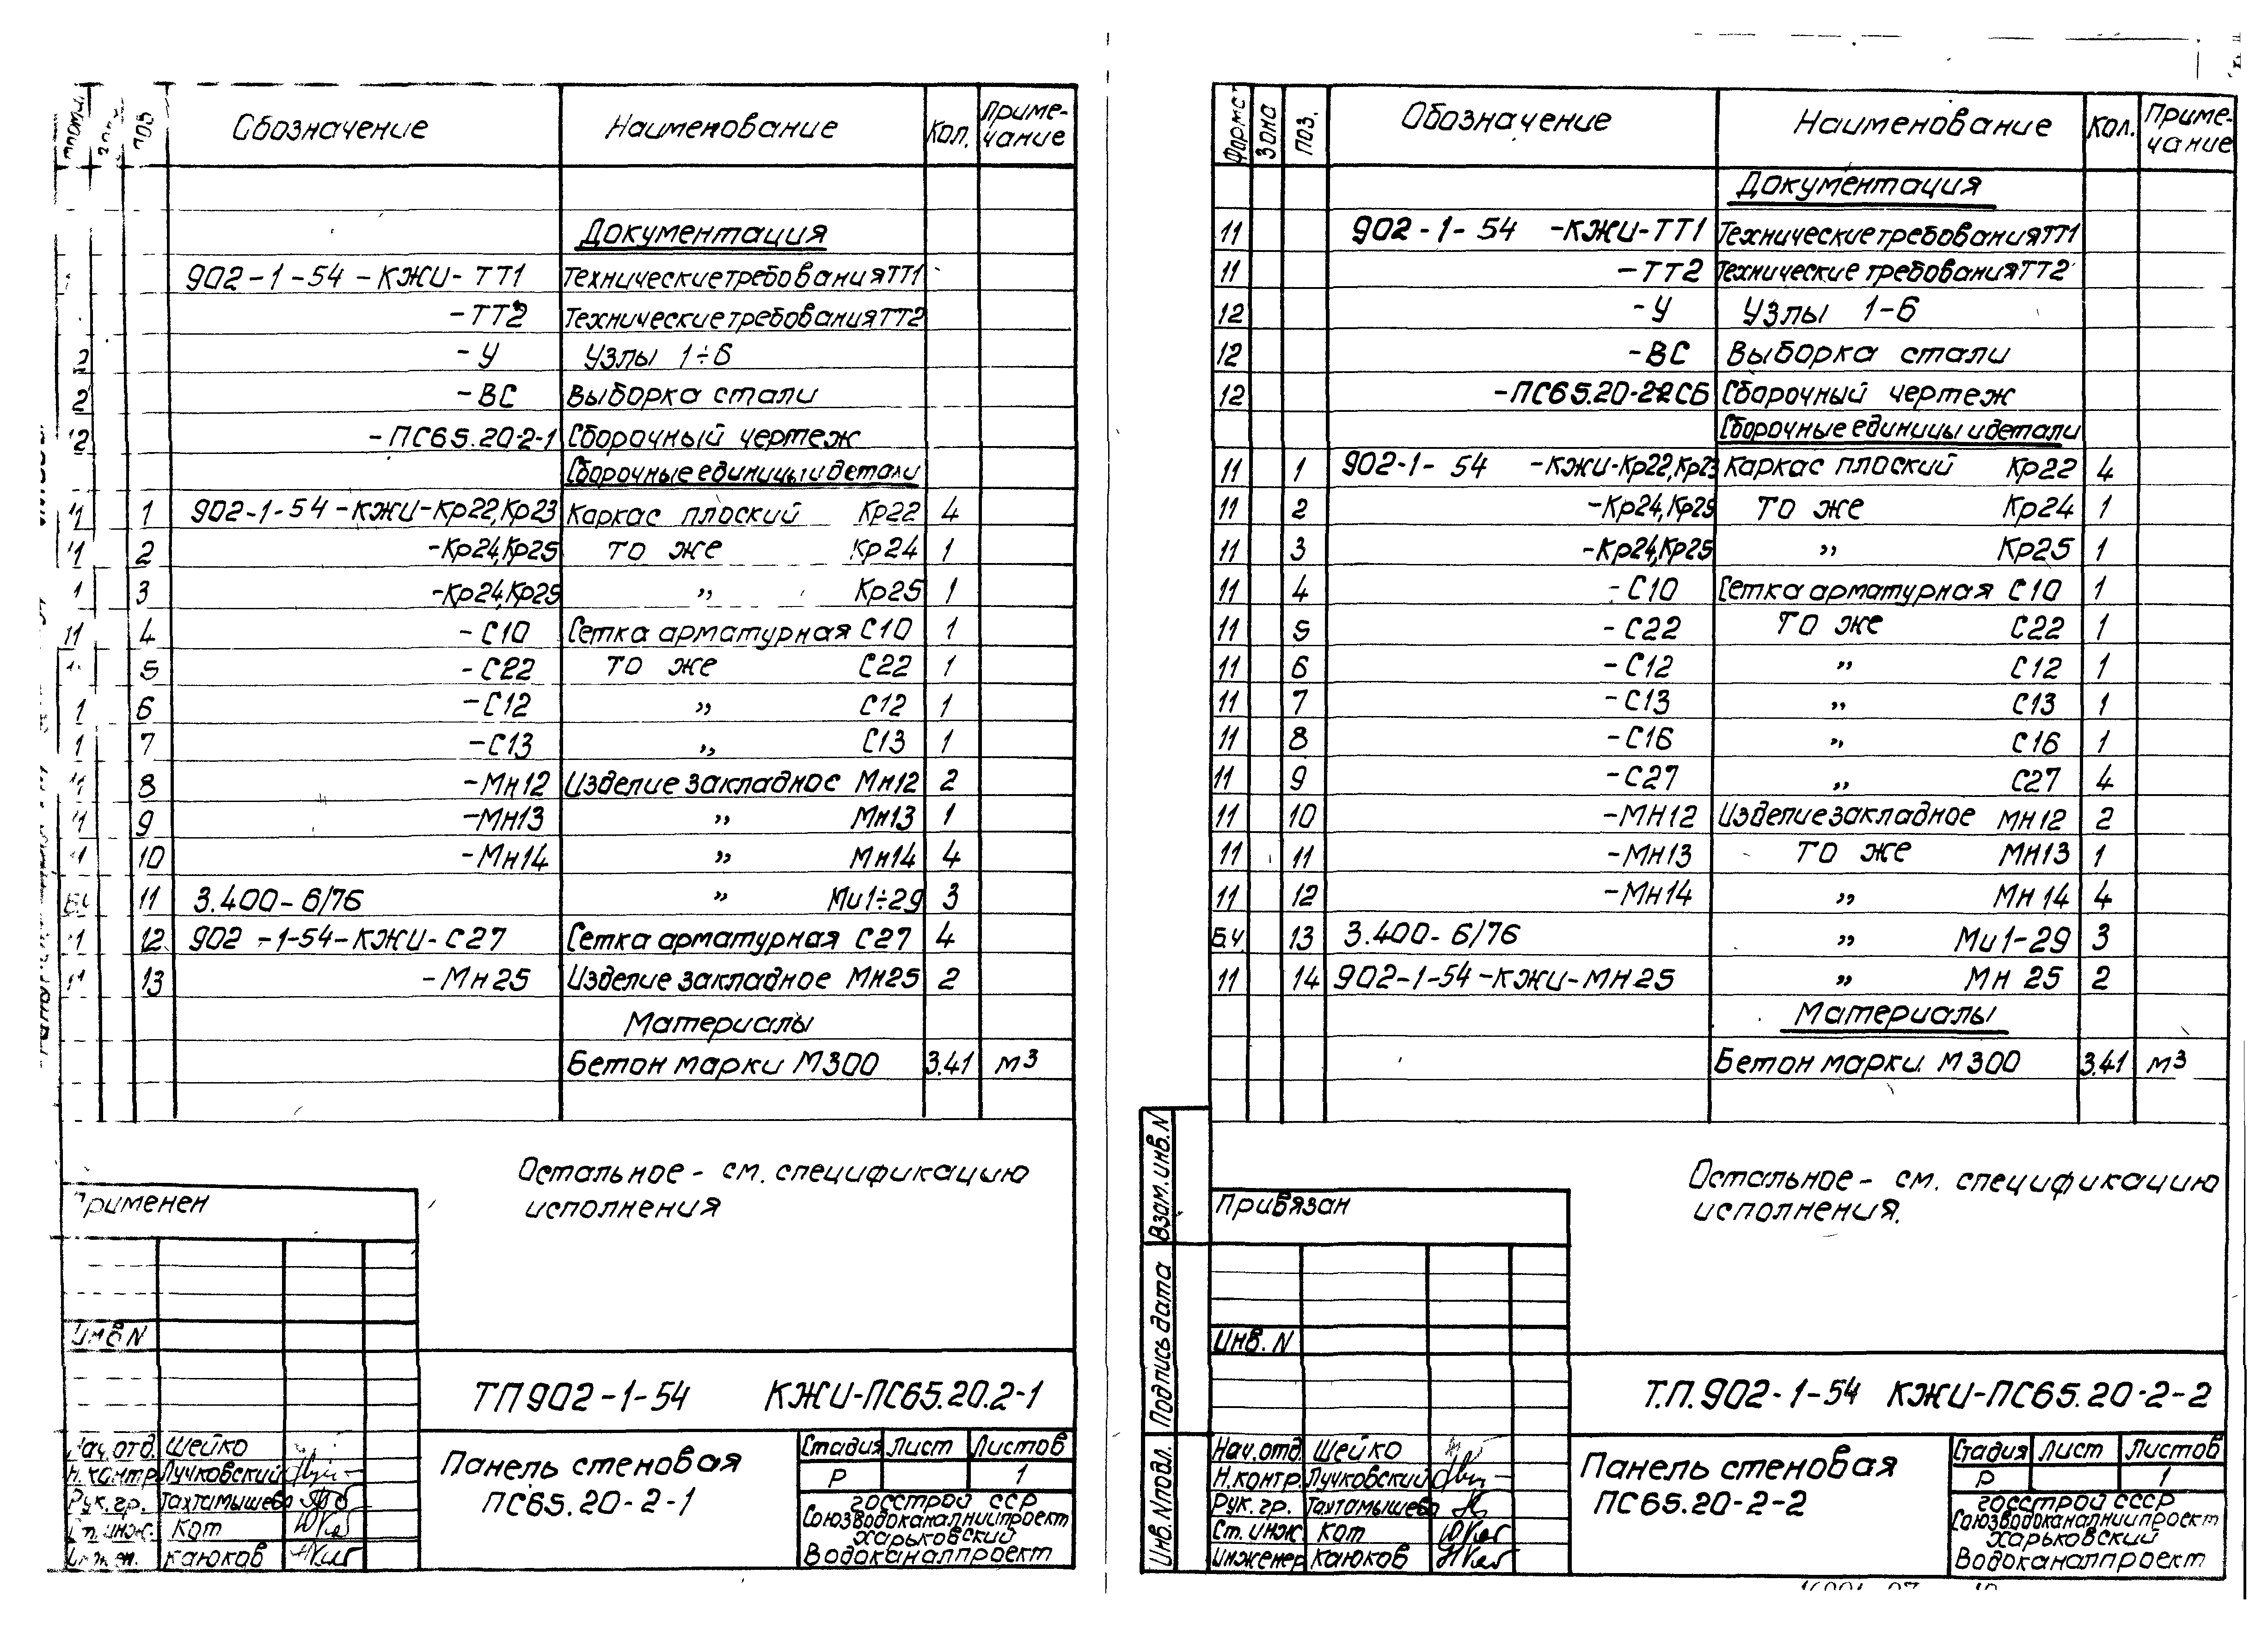 поз Обозначение Наименование Кол. Приме-чание
Документация
902-1-54-КЖИ-ТТ1 Технические требования ТТ1
-ТТ2 Технические требования ТТ2
2 -У Узлы 1÷6
2 -ВС Выборка стали
12 -ПС65.20-2-1 Сборочный чертеж
Сборочные единицы и детали
11 1 902-1-54-КЖИ-Кр22,Кр23 Каркас плоский Кр22 4
11 2 -Кр24,Кр25 то же Кр24 1
1 3 -Кр24,Кр25 " Кр25 1
11 4 -С10 Сетка арматурная С10 1
5 -С22 то же С22 1
1 6 -С12 " С12 1
1 7 -С13 " С13 1
11 8 -Мн12 Изделие закладное Мн12 2
11 9 -Мн13 " Мн13 1
11 10 -Мн14 " Мн14 4
Б.ч 11 3.400-6/76 " Ми1÷29 3
11 12 902-1-54-КЖИ-С27 Сетка арматурная С27 4
11 13 -Мн25 Изделие закладное Мн25 2
Материалы
Бетон марки М300 3.41 м3
Остальное - см. спецификацию
исполнения
Применен
Инв N
ТП 902-1-54 КЖИ-ПС65.20.2-1
Нач.отд. Шейко
Н.контр Лучковский
Рук.гр. Тахтамышева
Ст.инж. Кот
Инжен. Каюков
Панель стеновая
ПС65.20-2-1
Стадия Лист Листов
Р 1
Госстрой ССР
Союзводоканалниипроект
Харьковский
Водоканалпроект
Формат Зона Поз. Обозначение Наименование Кол. Приме-чание
Документация
11 902-1-54 -КЖИ-ТТ1 Технические требования ТТ1
11 -ТТ2 Технические требования ТТ2
12 -У Узлы 1-6
12 -ВС Выборка стали
12 -ПС65.20-2-2СБ Сборочный чертеж
Сборочные единицы и детали
11 1 902-1-54 -КЖИ-Кр22,Кр23 Каркас плоский Кр22 4
11 2 -Кр24,Кр25 то же Кр24 1
11 3 -Кр24,Кр25 " Кр25 1
11 4 -С10 Сетка арматурная С10 1
11 5 -С22 то же С22 1
11 6 -С12 " С12 1
11 7 -С13 " С13 1
11 8 -С16 " С16 1
11 9 -С27 " С27 4
11 10 -МН12 Изделие закладное МН12 2
11 11 -Мн13 то же МН13 1
11 12 -Мн14 " Мн 14 4
Б.Ч. 13 3.400-6/76 " Ми1-29 3
11 14 902-1-54-КЖИ-МН25 " Мн 25 2
Материалы
Бетон марки М300 3.41 м3
Остальное - см. спецификацию
исполнения.
Привязан
Инв. N
Взам.инв.N
Подпись дата
Инв.Nподл.
Т.П.902-1-54 КЖИ-ПС65.20-2-2
Нач.отд Шейко
Н.контр. Лучковский
Рук.гр. Тахтамышева
Ст.инж. Кот
Инженер Каюков
Панель стеновая
ПС65.20-2-2
Стадия Лист Листов
Р 1
Госстрой СССР
Союзводоканалниипроект
Харьковский
Водоканалпроект